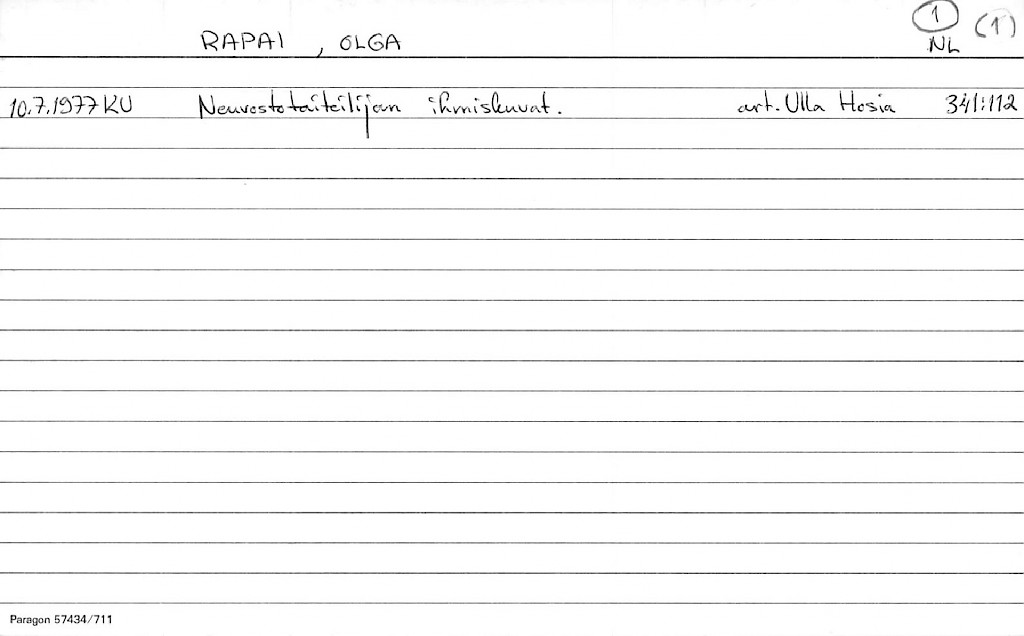 1 (1)
RAPAI, OLGA NL
10.7.1977 KU Neuvostotaiteilijan ihmiskuvat. art. Ulla Hosia 341:112
Paragon 57434/711